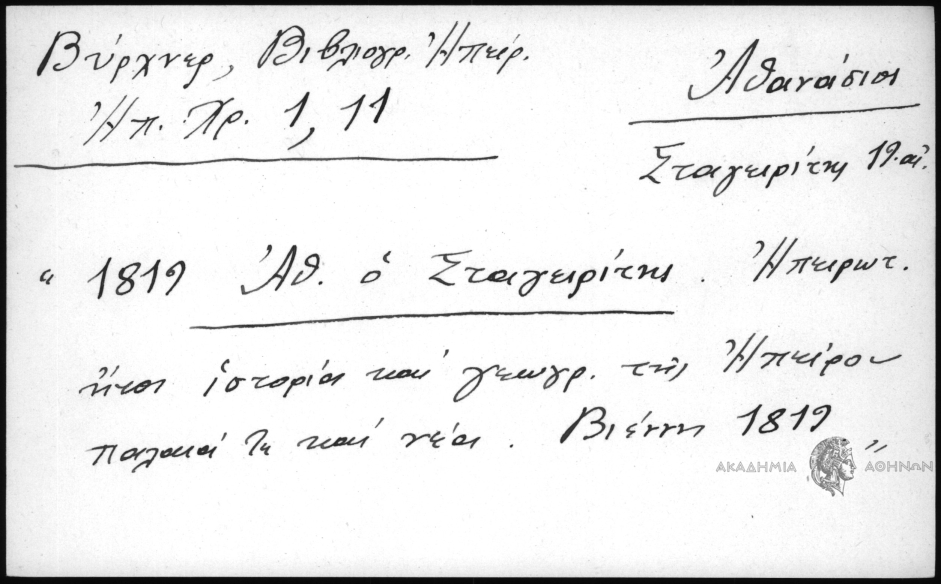 Βύρχνερ, Βιβλιογρ. Ἠπείρ.
Ἠπ. Χρ. 1, 11
Ἀθανάσιος
Σταγειρίτης 19. αἰ.
" 1819 Ἀθ. ὁ Σταγειρίτης. Ἠπειρωτ.
ἤτοι ἱστορία καὶ γεωγρ. τῆς Ἠπείρου
παλαιά τε καὶ νέα. Βιέννη 1819 "
ΑΚΑΔΗΜΙΑ ΑΘΗΝΩΝ